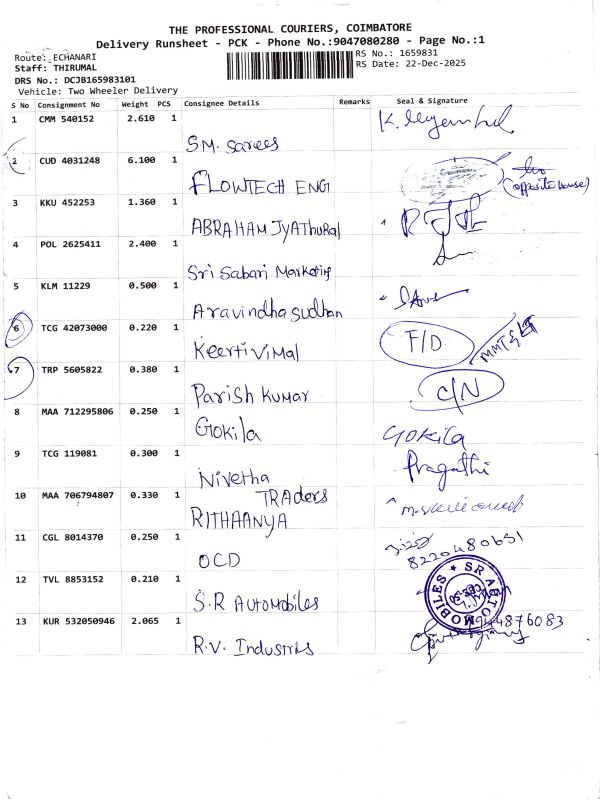 THE PROFESSIONAL COURIERS, COIMBATORE
Delivery Runsheet - PCK - Phone No.:9047080280 - Page No.:1
Route: ECHANARI
RS No.: 1659831
Staff: THIRUMAL
RS Date: 22-Dec-2025
DRS No.: DCJB165983101
Vehicle: Two Wheeler Delivery
S No Consignment No Weight PCS Consignee Details Remarks Seal & Signature
1 CMM 540152 2.610 1
S.M. Sarees
2 CUD 4031248 6.100 1
FLOWTECH ENG
(opposite house)
3 KKU 452253 1.360 1
ABRAHAM JyAThuRal
4 POL 2625411 2.400 1
Sri Sabari Marketing
5 KLM 11229 0.500 1
Aravindhasudhan
6 TCG 42073000 0.220 1
Keertivimal
F/D
7 TRP 5605822 0.380 1
Parish Kumar
C/N
8 MAA 712295806 0.250 1
Gokila
Gokila
9 TCG 119081 0.300 1
Nivetha
Pragathi
10 MAA 706794807 0.330 1
TRAders
RITHAANYA
11 CGL 8014370 0.250 1
OCD
8220480651
12 TVL 8853152 0.210 1
S.R AutoMobiles
SR AUTOMOBILES
13 KUR 532050946 2.065 1
R.V. Industris
9444876083